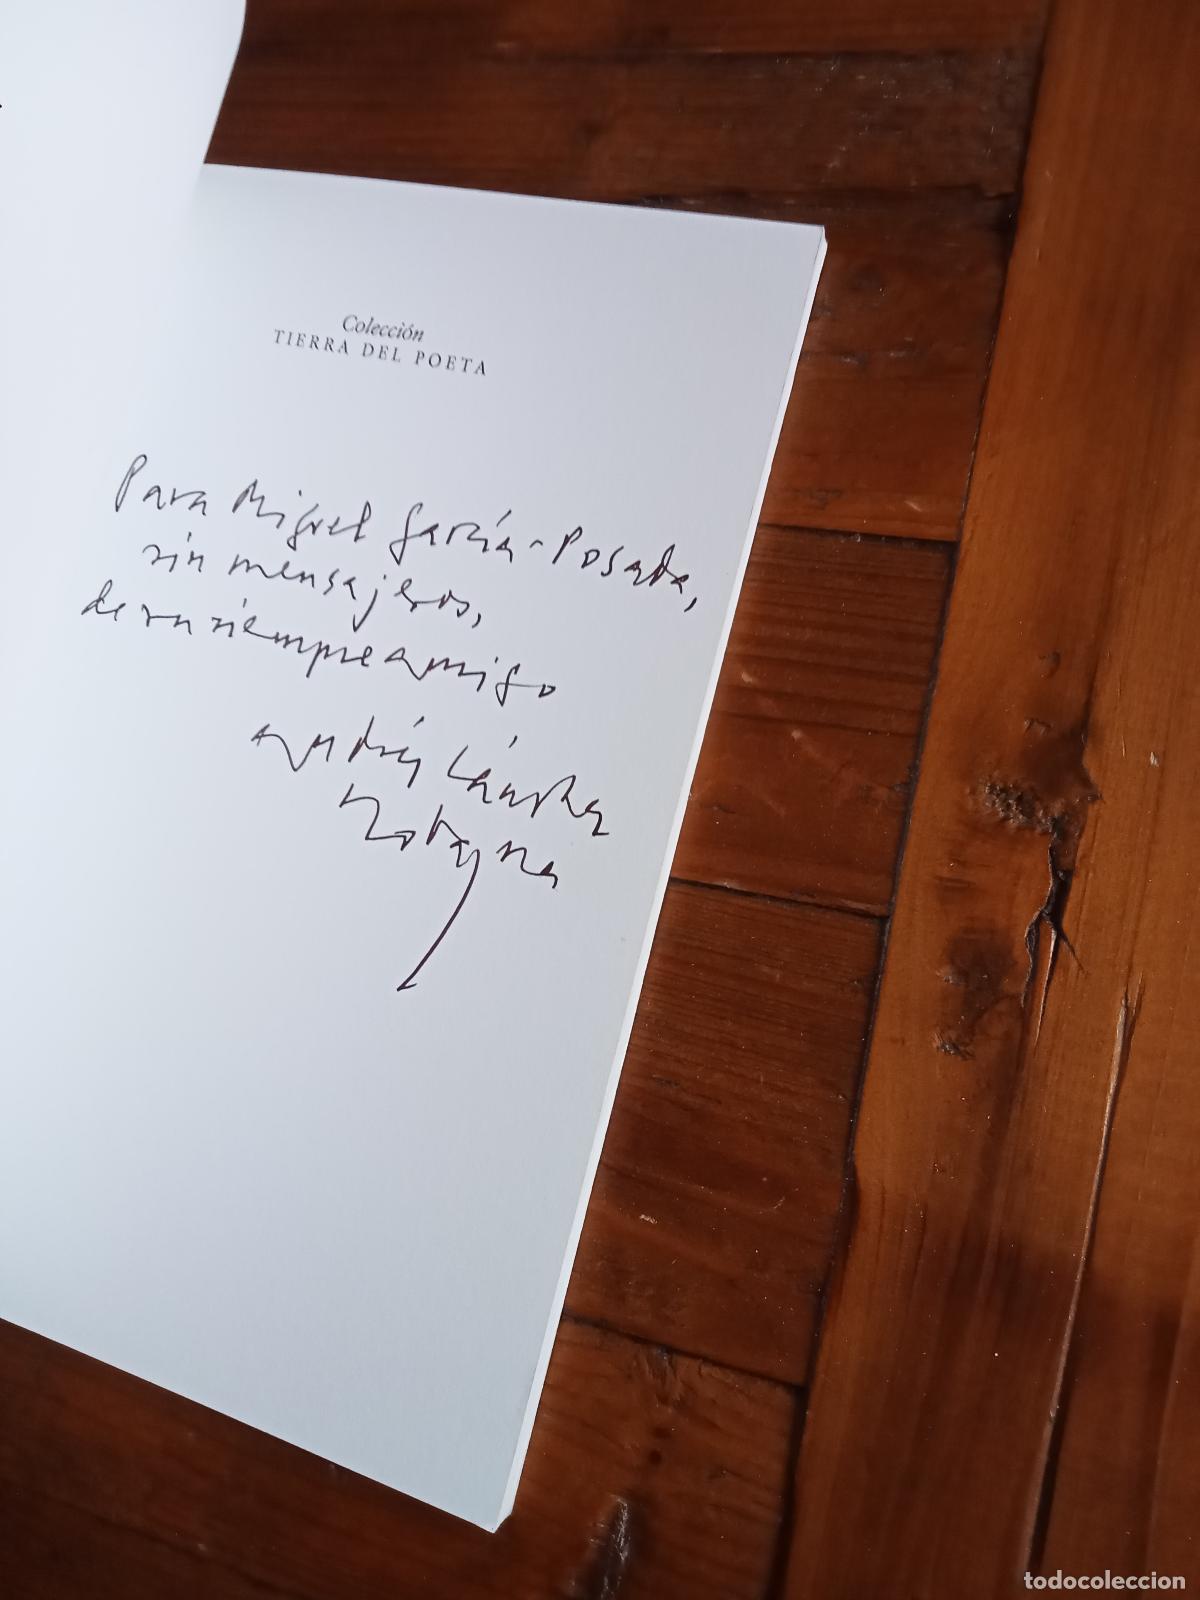 Colección
TIERRA DEL POETA
Para Miguel García-Posada,
sin mensajeros,
de su siempre amigo
Andrés Sánchez
Robayna
todocoleccion